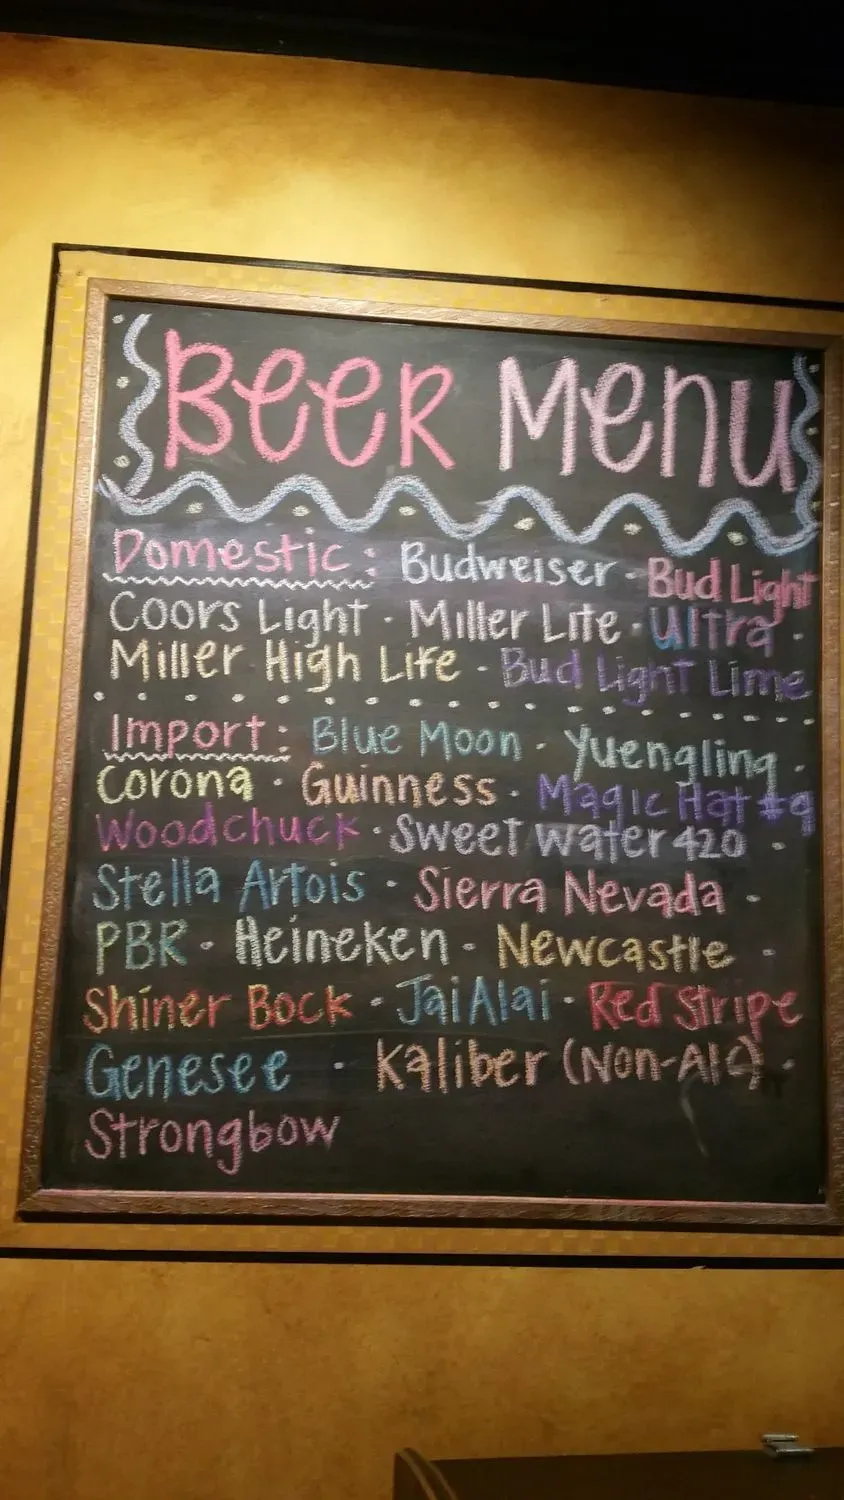 Beer Menu
Domestic: Budweiser - Bud Light
Coors Light · Miller Lite · Ultra ·
Miller High Life · Bud Light Lime
Import: Blue Moon · Yuengling ·
Corona · Guinness · Magic Hat #9
Woodchuck · Sweet water 420 ·
Stella Artois · Sierra Nevada ·
PBR · Heineken · Newcastle ·
Shiner Bock · Jai Alai · Red Stripe
Genesee · Kaliber (Non-Alc) ·
Strongbow